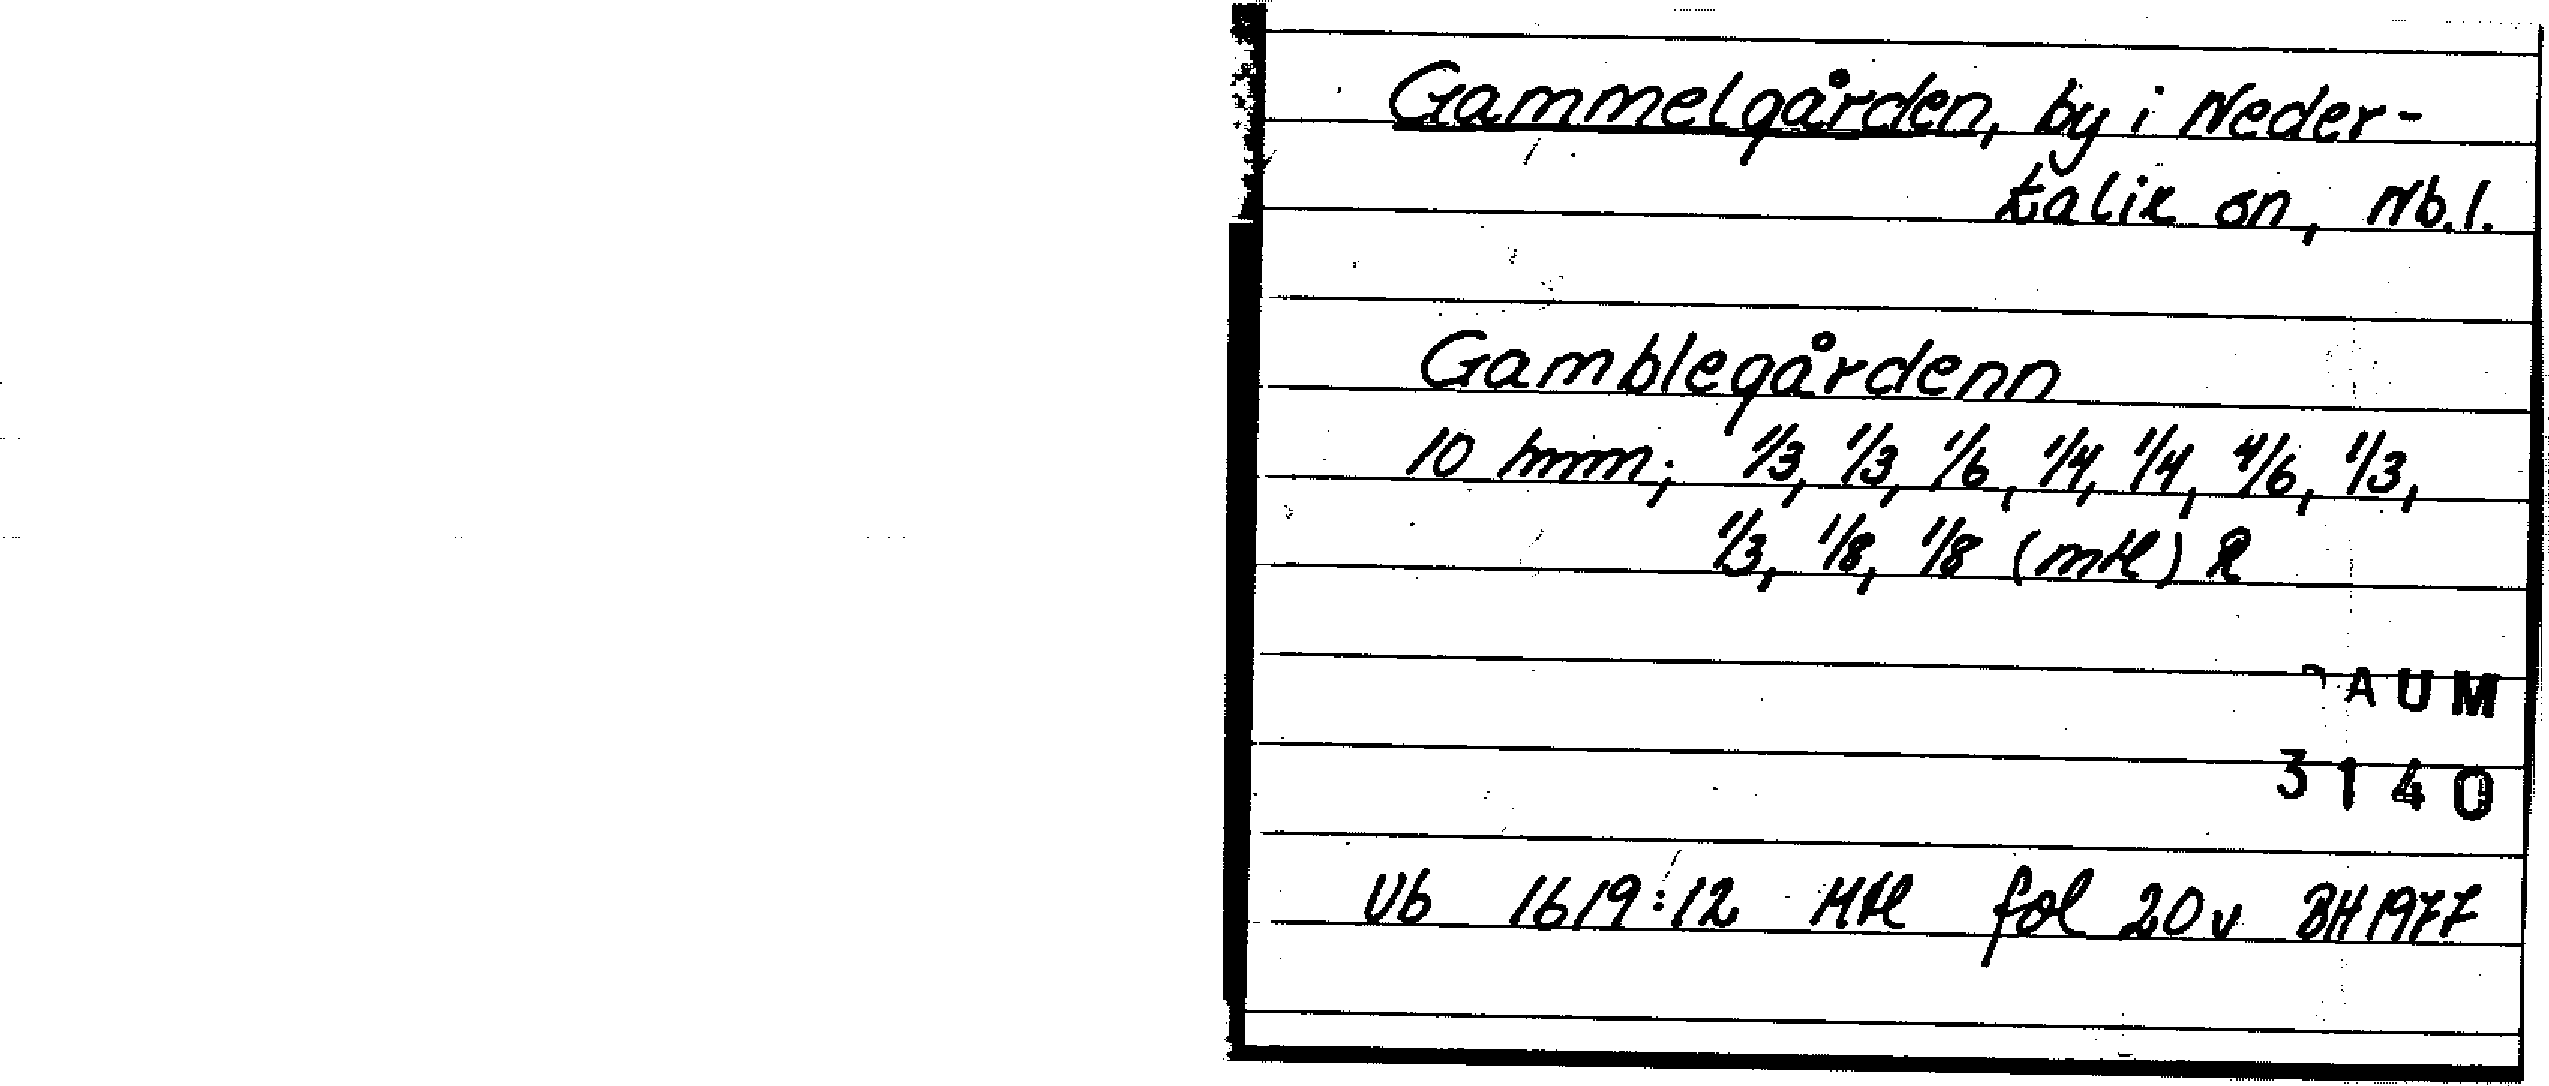 Gammelgården, by i Neder-
kalix sn, Nb.l.
Gamblegårdenn
10 hmn; 1/3, 1/3, 1/6, 1/4, 1/4, 4/6, 1/3,
1/3, 1/8, 1/8 (mtl) R
DAUM
3140
Vb 1619:12 Mtl fol 20v BH 1977